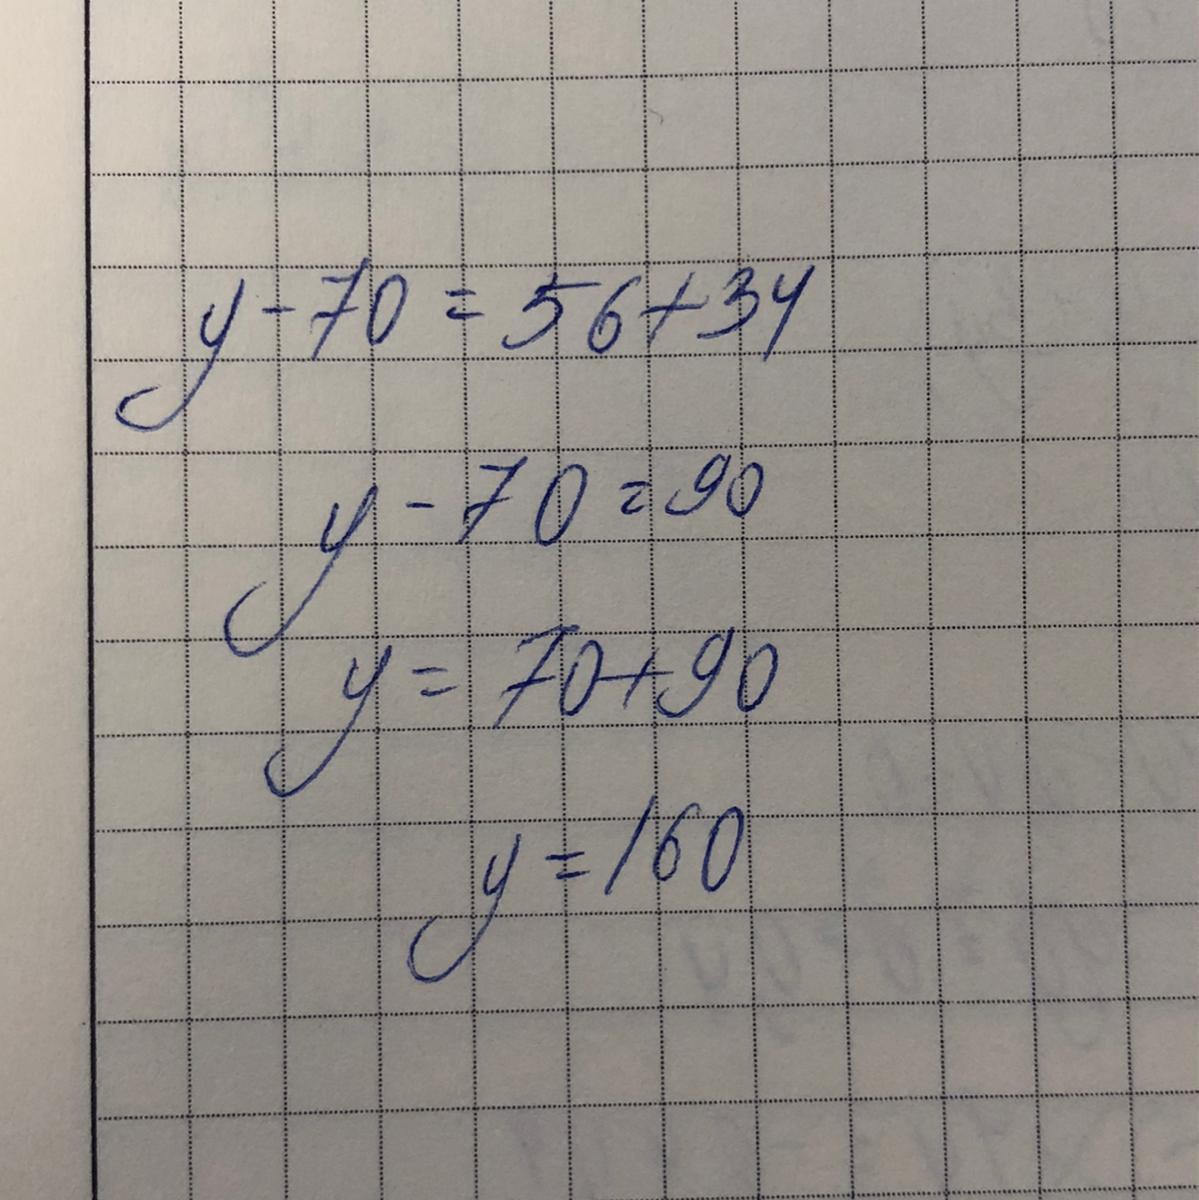 y - 70 = 56 + 34
y - 70 = 90
y = 70 + 90
y = 160